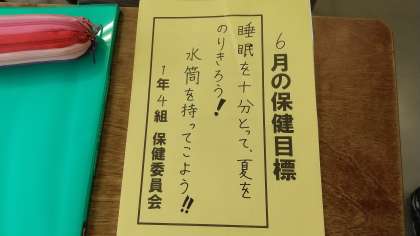 6月の保健目標
睡眠を十分とって、夏を
のりきろう!
水筒を持ってこよう!!
1年4組 保健委員会